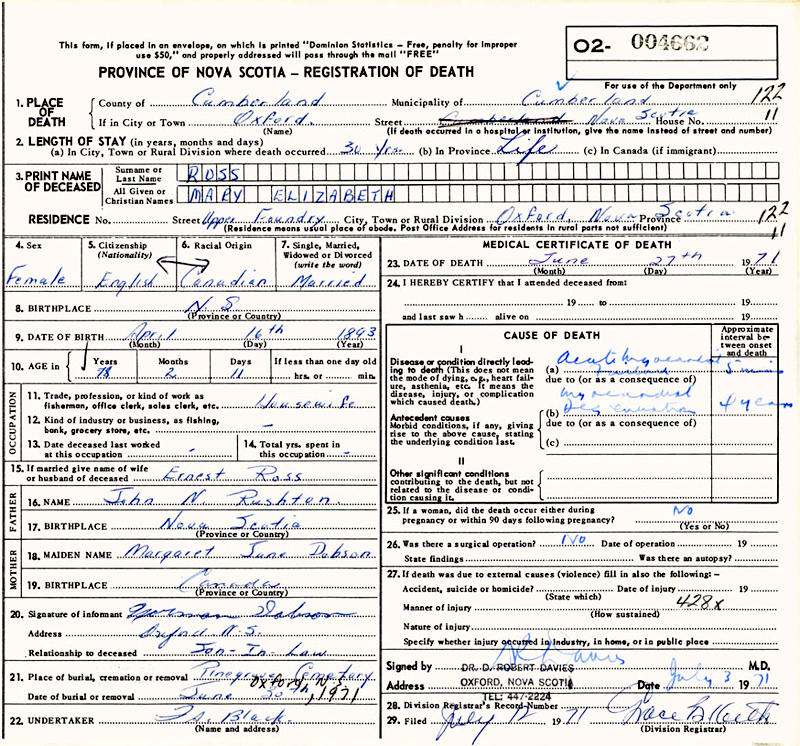 This form, if placed in an envelope, on which is printed "Dominion Statistics – Free, penalty for improper
use $50," and properly addressed will pass through the mail "FREE"
O2- 004662
PROVINCE OF NOVA SCOTIA – REGISTRATION OF DEATH
For use of the Department only
1. PLACE OF DEATH { County of Cumberland Municipality of Cumberland 122
If in City or Town Oxford. Street Cumberland Nova Scotia House No. 11
(Name) (If death occurred in a hospital or institution, give the name instead of street and number)
2. LENGTH OF STAY (in years, months and days)
(a) In City, Town or Rural Division where death occurred 30 yrs. (b) In Province Life (c) In Canada (if immigrant)
3. PRINT NAME OF DECEASED { Surname or Last Name ROSS
All Given or Christian Names MARY ELIZABETH
RESIDENCE No. Street Upper Foundry City, Town or Rural Division Oxford, Nova Scotia Province 122
(Residence means usual place of abode. Post Office Address for residents in rural parts not sufficient) 11
4. Sex 5. Citizenship (Nationality) 6. Racial Origin 7. Single, Married, Widowed or Divorced (write the word)
Female English Canadian Married
8. BIRTHPLACE N.S
(Province or Country)
9. DATE OF BIRTH April 16th 1893
(Month) (Day) (Year)
10. AGE in { Years Months Days If less than one day old
78 2 11 hrs. or min.
OCCUPATION
11. Trade, profession, or kind of work as
fisherman, office clerk, sales clerk, etc. Housewife
12. Kind of industry or business, as fishing,
bank, grocery store, etc. -
13. Date deceased last worked
at this occupation
14. Total yrs. spent in
this occupation -
15. If married give name of wife
or husband of deceased Ernest Ross
FATHER
16. NAME John N. Rushton.
17. BIRTHPLACE Nova Scotia
(Province or Country)
MOTHER
18. MAIDEN NAME Margaret Jane Dobson
19. BIRTHPLACE Canada
(Province or Country)
20. Signature of informant Norman Dobson
Address Oxford N.S.
Relationship to deceased Son-In-Law
21. Place of burial, cremation or removal Pinegrove Cemetary
Oxford, N.S
Date of burial or removal June 30th, 1971
22. UNDERTAKER Black.
(Name and address)
MEDICAL CERTIFICATE OF DEATH
23. DATE OF DEATH June 27th 1971
(Month) (Day) (Year)
24. I HEREBY CERTIFY that I attended deceased from:
19 to 19
and last saw h alive on 19
CAUSE OF DEATH
Approximate interval between onset and death
I
Disease or condition directly leading to death (This does not mean
the mode of dying, e.g., heart failure, asthenia, etc. It means the
disease, injury, or complication
which caused death.)
(a) Acute myocardial 5 min
due to (or as a consequence of)
Antecedent causes
Morbid conditions, if any, giving
rise to the above cause, stating
the underlying condition last.
(b) myocardial Degeneration 4 years
due to (or as a consequence of)
(c)
II
Other significant conditions
contributing to the death, but not
related to the disease or condition causing it.
25. If a woman, did the death occur either during
pregnancy or within 90 days following pregnancy? NO
(Yes or No)
26. Was there a surgical operation? NO Date of operation 19
State findings Was there an autopsy?
27. If death was due to external causes (violence) fill in also the following: –
Accident, suicide or homicide? Date of injury 19
(State which)
Manner of injury 428x
(How sustained)
Nature of injury
Specify whether injury occurred in industry, in home, or in public place
Signed by DR. D. ROBERT DAVIES M.D.
Address OXFORD, NOVA SCOTIA Date July 3 1971
TEL: 447-2224
28. Division Registrar's Record Number
29. Filed July 12 1971
(Division Registrar)